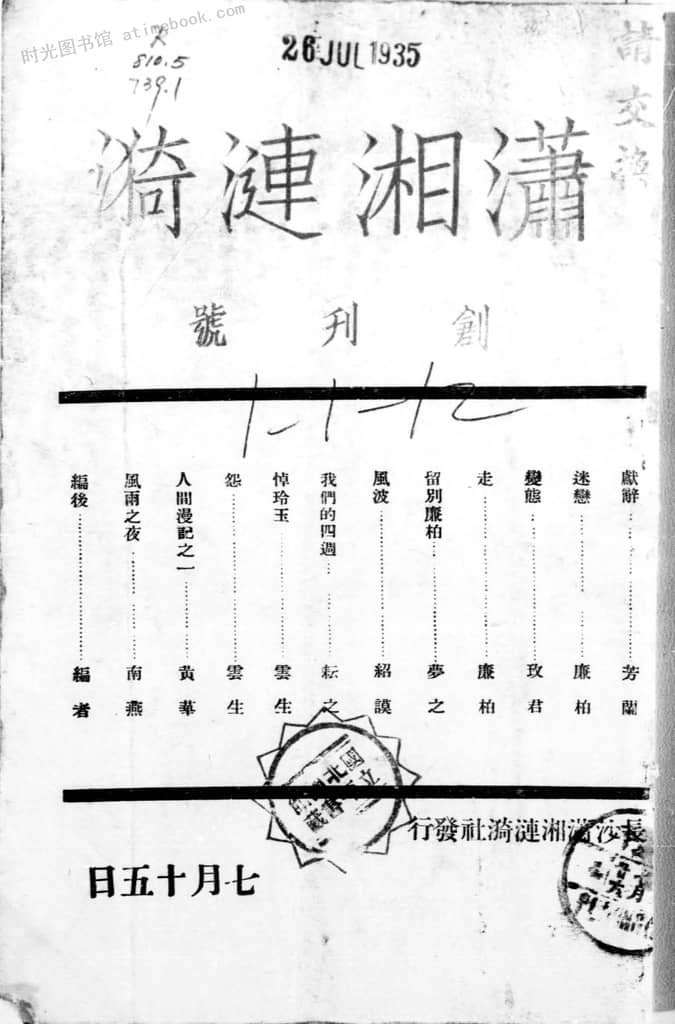 时光图书馆 atimebook.com
26 JUL 1935
810.5
739.1
請交換
瀟湘漣漪
創刊號
1-1-12
獻辭 芳蘭
迷戀 廉柏
變態 玫君
走 廉柏
留別廉柏 夢之
風波 紹謨
我們的四週 耘之
悼玲玉 雲生
怨 雲生
人間漫記之一 黃華
風雨之夜 南燕
編後 編者
長沙瀟湘漣漪社發行
七月十五日